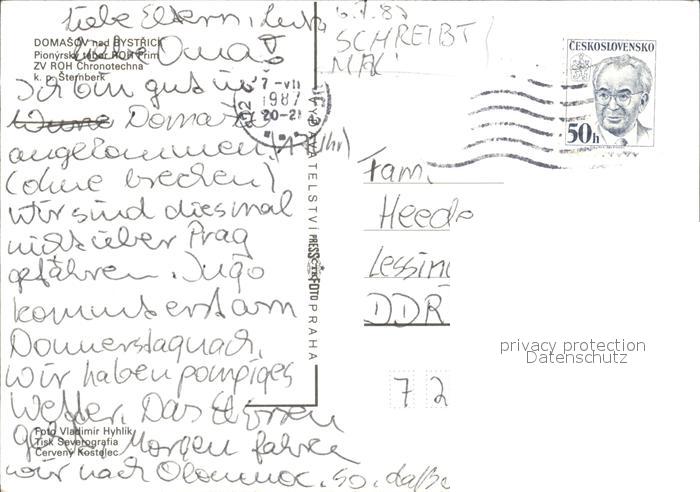 6.7.87
SCHREIBT
MAL!
Liebe Eltern,
DOMAŠOV nad BYSTŘICÍ
Pionýrský tábor ROH Prim
ZV ROH Chronotechna
k. p. Šternberk
Liebe Omas
Ich bin gut in
Domašov
angekommen
(ohne brechen)
wir sind diesmal
nicht über Prag
gefahren. Ingo
kommt erst am
Donnerstag nach.
Wir haben pompiges
Wetter. Das Essen
geht. Morgen fahren
wir nach Olomouc. So, daß
Foto Vladimír Hyhlík
Tisk Severografia
Červený Kostelec
7-VII
1987
VYDAVATELSTVÍ PRESSFOTO PRAHA
ČESKOSLOVENSKO
50h
Fam.
Heede
Lessin
DDR
72
privacy protection
Datenschutz